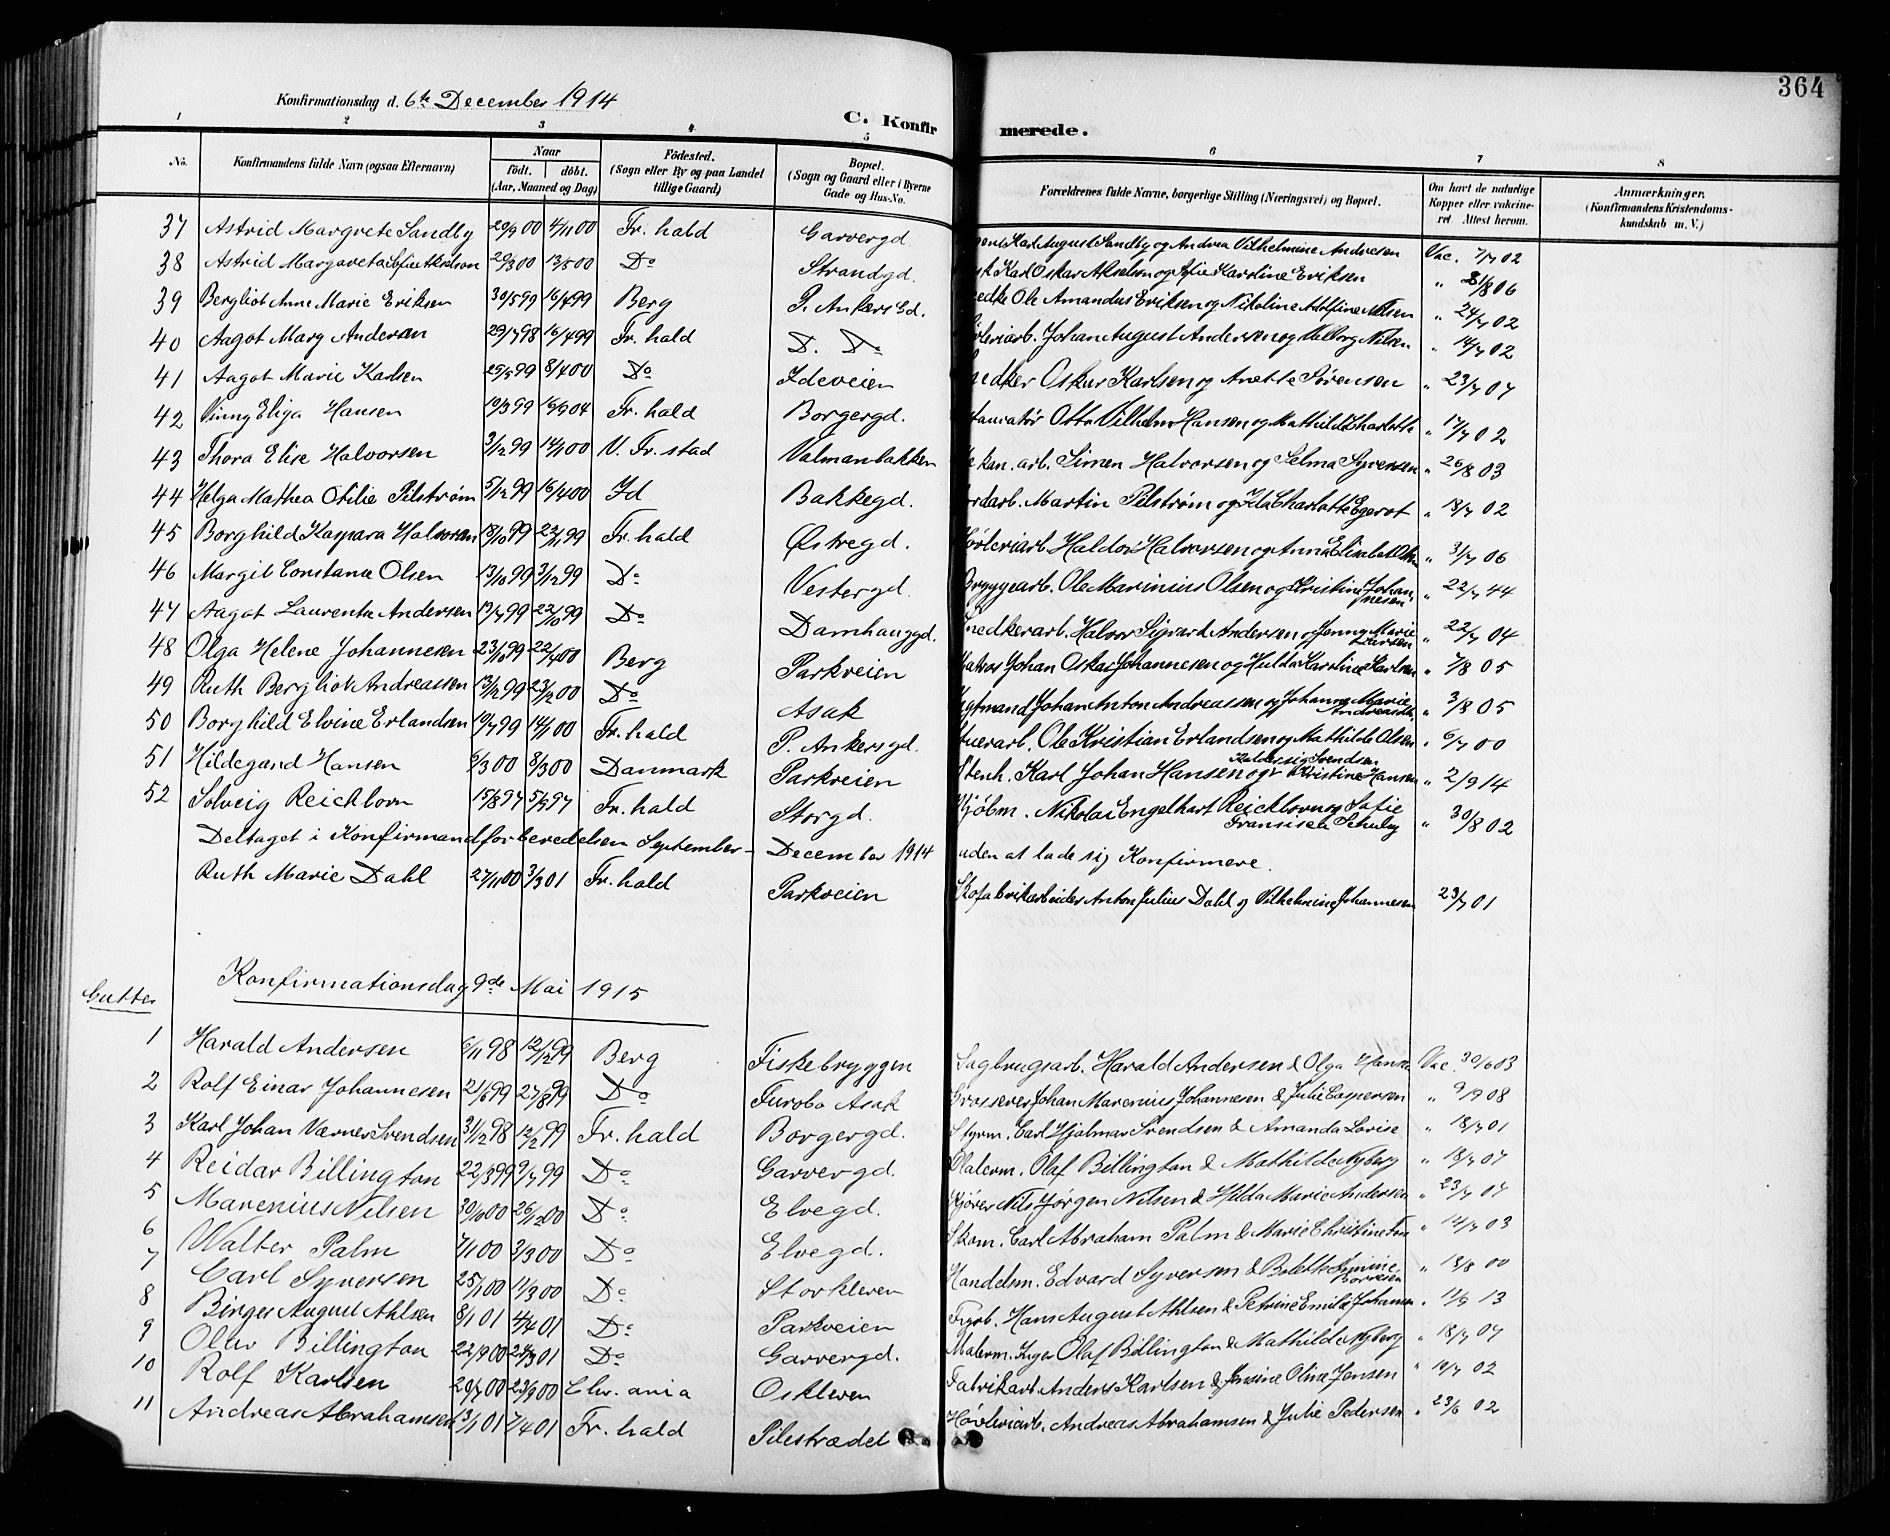 364
Konfirmationsdag d. 6te December 1914
C. Konfirmerede.
1 2 3 4 5 6 7 8
No. Konfirmandens fulde Navn (ogsaa Efternavn) Naar födt. döbt. (Aar, Maaned og Dag) Födested. (Sogn eller By og paa Landet tillige Gaard) Bopæl. (Sogn og Gaard eller i Byerne Gade og Hus-No. Forældrenes fulde Navne, borgerlige Stilling (Næringsvei) og Bopæl. Om havt de naturlige Kopper eller vakcineret. Attest herom. Anmærkninger, (Konfirmandens Kristendomskundskab m. V.)
37 Astrid Margrete Sandby 29/9 00 4/11 00 Fr. hald Garvergd. Karl August Sandby og Andrea Vilhelmine Andresen Vac. 7/7 02
38 Astrid Margareta Sofie Akselson 29/3 00 13/5 00 Do Strandgd. Karl Oskar Akselsen og Sofie Karoline Eriksen " 31/8 06
39 Bergliot Anne Marie Eriksen 30/5 99 16/4 99 Berg P. Ankers Gd. Ole Amandus Eriksen og Nikoline Adolfine Nilsen " 24/7 02
40 Aagot Marg Andersen 29/7 98 16/4 99 Fr. hald D. Do Johan August Andersen og Valborg Nilsen " 14/7 02
41 Aagot Marie Karlsen 25/5 99 8/4 00 Do Ideveien Oskar Karlsen og Anette Sørensen " 23/7 07
42 Vinny Eliza Hansen 19/3 99 16/9 04 Fr. hald Borgergd. Otto Vilhelm Hansen og Mathilde Charlotte " 17/7 02
43 Thora Elise Halvorsen 3/12 99 14/1 00 V. Fr. stad Valmanbakken kan. arb. Simen Halvorsen og Selma Syversen " 26/8 03
44 Helga Mathea Otilie Pilstrøm 5/12 99 16/4 00 Id Bakkegd. Martin Pilstrøm og Ida Charlotte Egerot " 18/7 02
45 Borghild Kaspara Halvorsen 18/10 99 22/11 99 Fr. hald Østregd. Høvleriarb. Haldor Halvorsen og Anna Elisabet Olsen " 3/7 06
46 Margit Constance Olsen 13/10 99 3/12 99 Do Vestergd. Bryggearb. Ole Marinius Olsen og Kristine Johannesen " 22/7 44
47 Aagot Laurentse Andersen 19/7 99 22/10 99 Do Damhauggd. Snedkerarb. Halvor Sigvart Andersen og Jenny Marie Larsen " 22/7 04
48 Olga Helene Johannesen 23/10 99 22/4 00 Berg Parkveien Matros Johan Oskar Johannesen og Hulda Karoline Karlsen " 7/8 05
49 Ruth Bergliot Andreassen 13/12 99 23/2 00 Do Asak Johan Anton Andreassen og Johanne Marie " 3/8 05
50 Borghild Elvine Erlandsen 19/7 99 14/1 00 Fr. hald P. Ankersgd. Ole Kristian Erlandsen og Mathilde Olsen " 6/7 00
51 Hildegand Hansen 6/3 00 8/3 00 Danmark Parkveien Stenh. Karl Johan Hansen og Kristine Hansen " 2/9 14
52 Solveig Reichborn 15/8 97 5/9 97 Fr. hald Storgd. Kjøbm. Nikolai Engelhart Reichborn og Sofie Fransiska Schuly " 30/8 02
Deltaget i Konfirmandforberedelsen September - December 1914 uden at lade sig Konfirmere.
Ruth Marie Dahl 27/11 00 3/3 01 Fr. hald Parkveien Skofabrikarbeider Anton Julius Dahl og Vilhelmine Johannesen 23/7 01
Konfirmationsdag 9de Mai 1915
Gutter
1 Harald Andersen 6/11 98 12/12 99 Berg Fiskebryggen Sagbrugsarb. Harald Andersen & Olga Hansen Vac. 30/6 03
2 Rolf Einar Johannesen 21/6 99 27/8 99 Do Furobo Asak Grosserer Johan Marenius Johannesen & Julie Caspersen " 9/9 08
3 Karl Johan Værner Svendsen 31/12 98 12/2 99 Fr. hald Borgergd. Styrm. Carl Hjalmar Svendsen & Amanda Lovise " 18/7 01
4 Reidar Billington 22/3 99 9/7 99 Do Garvergd. Malerm. Olaf Billington & Mathilde Nyberg " 18/7 07
5 Marenius Nilsen 30/10 00 26/12 00 Do Elvegd. Kjører Nils Jørgen Nilsen & Hilda Marie Andersen " 23/7 07
6 Walter Palm 7/1 00 3/3 00 Do Elvegd. Skom. Carl Abraham Palm & Marie Christine " 14/7 03
7 Carl Syversen 25/1 00 11/3 00 Do Storkleven Handelsm. Edvard Syversen & Bolette " 18/8 00
8 Birger August Ahlsen 8/1 01 4/4 01 Do Parkveien Fyrb. Hans August Ahlsen & Petrine Emilie Johansen " 11/9 13
9 Olav Billington 22/9 00 24/3 01 Do Garvergd. Malerm. Inger Olaf Billington & Mathilde Nyberg " 18/7 07
10 Rolf Karlsen 20/7 00 23/9 00 Chr. ania Oskleven Fabrikarb. Anders Karlsen & Jensine Oline Jensen " 19/7 02
11 Andreas Abrahamsen 13/1 01 7/4 01 Fr. hald Pilestrædet Høvleriarb. Andreas Abrahamsen & Julie Pedersen " 23/6 02